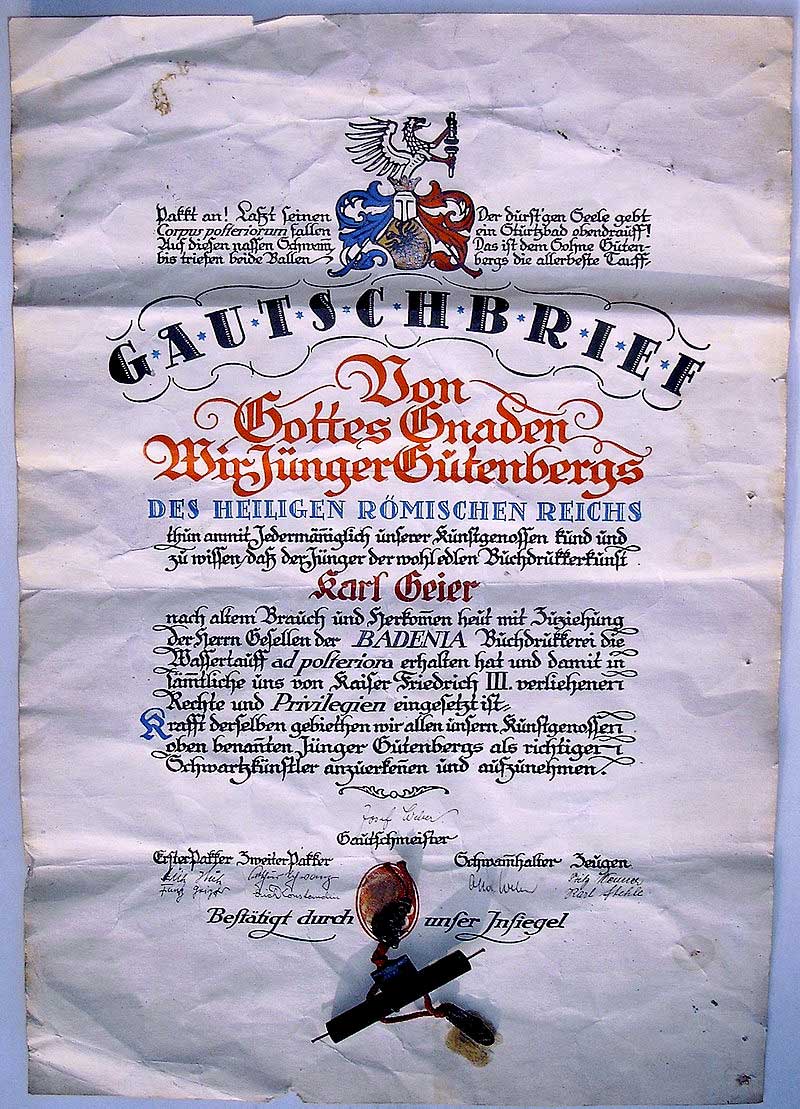 Pakkt an! Laßt seinen
Corpus posteriorum fallen
Auf diesen nassen Schwam̄
bis triefen beide Ballen
Der dürst'gen Seele gebt
ein Sturtzbad obendrauff!
Das ist dem Sohne Guten-
bergs die allerbeste Tauff
G·A·U·T·S·C·H·B·R·I·E·F
Von
Gottes Gnaden
Wir Jünger Gutenbergs
DES HEILIGEN RÖMISCHEN REICHS
thun anmit Jedermäniglich unserer Kunstgenossen kund und
zu wissen, daß der Jünger der wohledlen Buchdrukkerkunst
Karl Geier
nach altem Brauch und Herkom̄en heut mit Zuziehung
der Herrn Gesellen der BADENIA Buchdrukkerei die
Wassertauff ad posteriora erhalten hat und damit in
säm̄tliche uns von Kaiser Friedrich III. verliehenen
Rechte und Privilegien eingesetzt ist-
Krafft derselben gebiethen wir allen unsern Kunstgenossen
oben benanten Jünger Gutenbergs als richtigen
Schwartzkünstler anzuerken̄en und aufzunehmen.
Josef Weber
Gautschmeister
Erster Pakker Zweiter Pakker Schwamhalter Zeugen
Karl Stehle
Bestätigt durch unser Insiegel